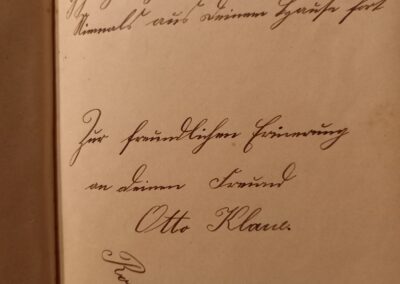 Niemals aus deinem Hause fort
Zur freundlichen Erinerung
an deinen Freund
Otto Klaue.